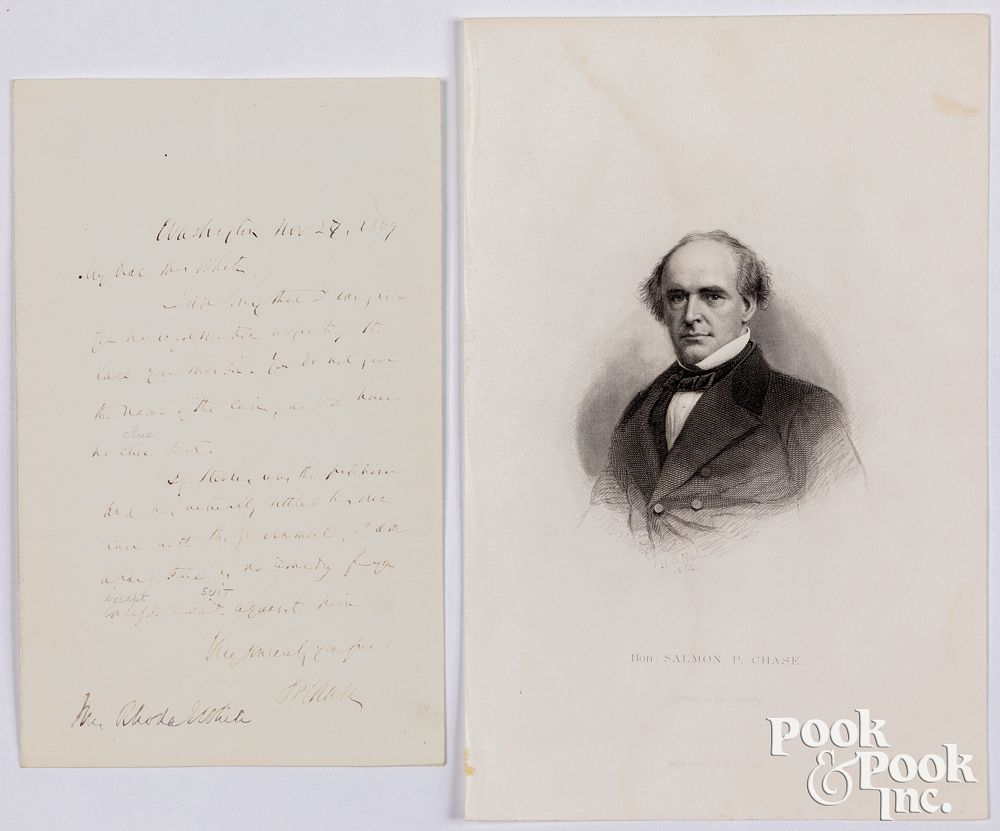 Washington Nov 27, 1869
My dear Mrs White,
I am sorry that I can give
you no information respecting the
case you mention. You do not give
the name of the case, and I have
clue
no clue to it.
If was the petitioner
and has actually settled his own
case with the Government, I am
afraid there is no remedy for you
except suit
against him
Very sincerely your friend
S P Chase
Mrs Rhoda E White
Hon. SALMON P. CHASE.
Secretary of the Treasury
NEW YORK
POOK
& POOK
INC.